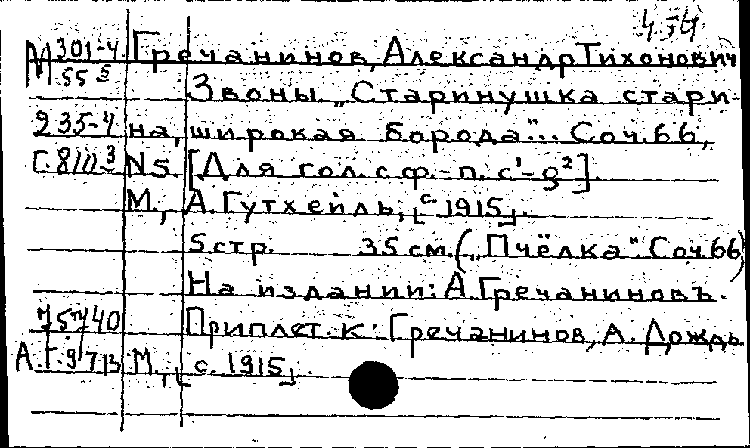 4.54
М 301-4 Гречанинов, Александр Тихонович
55 § Звоны. „Старинушка стари-
235-4 на, широкая борода"... Соч. 66,
Г.8III-3 N5. [Для гол. с ф.-п. c¹-g²].
М., А. Гутхейль, [с 1915].
5 стр. 35 см. („Пчёлка". Соч. 66)
На издании: А. Гречаниновъ.
Приплет. к: Гречанинов, А. Дождь
М., [с. 1915].